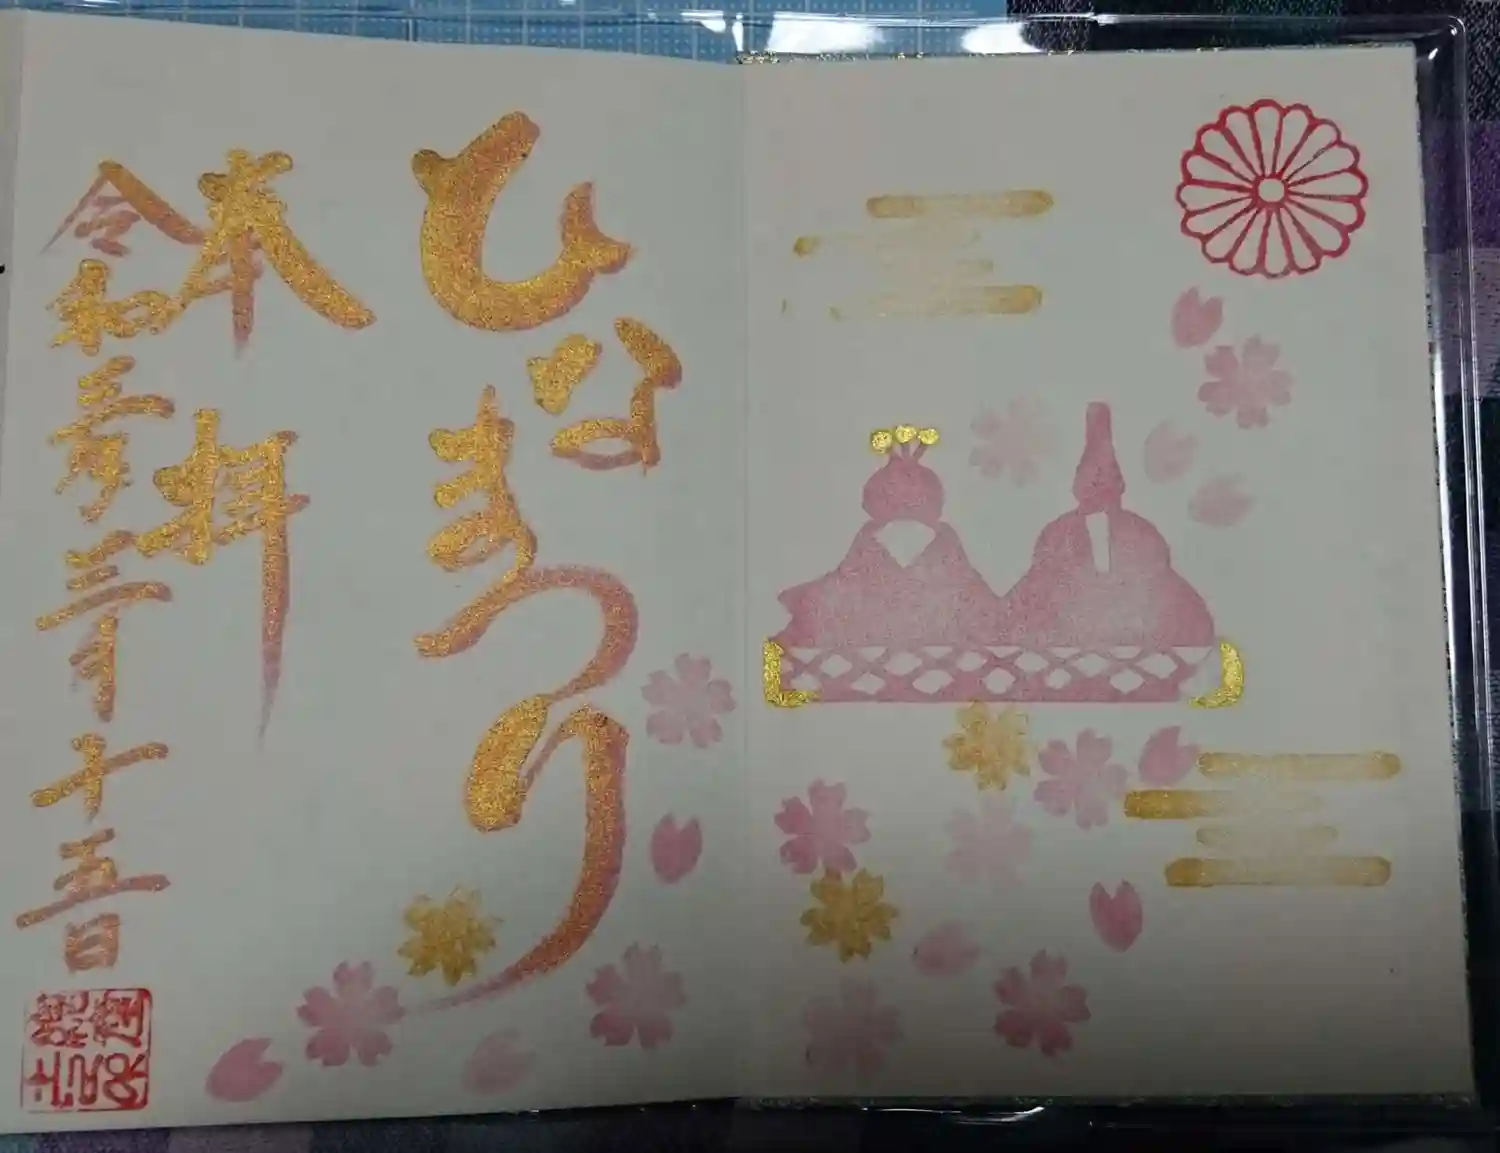 ひなまつり
奉拝
令和五年三月十五日